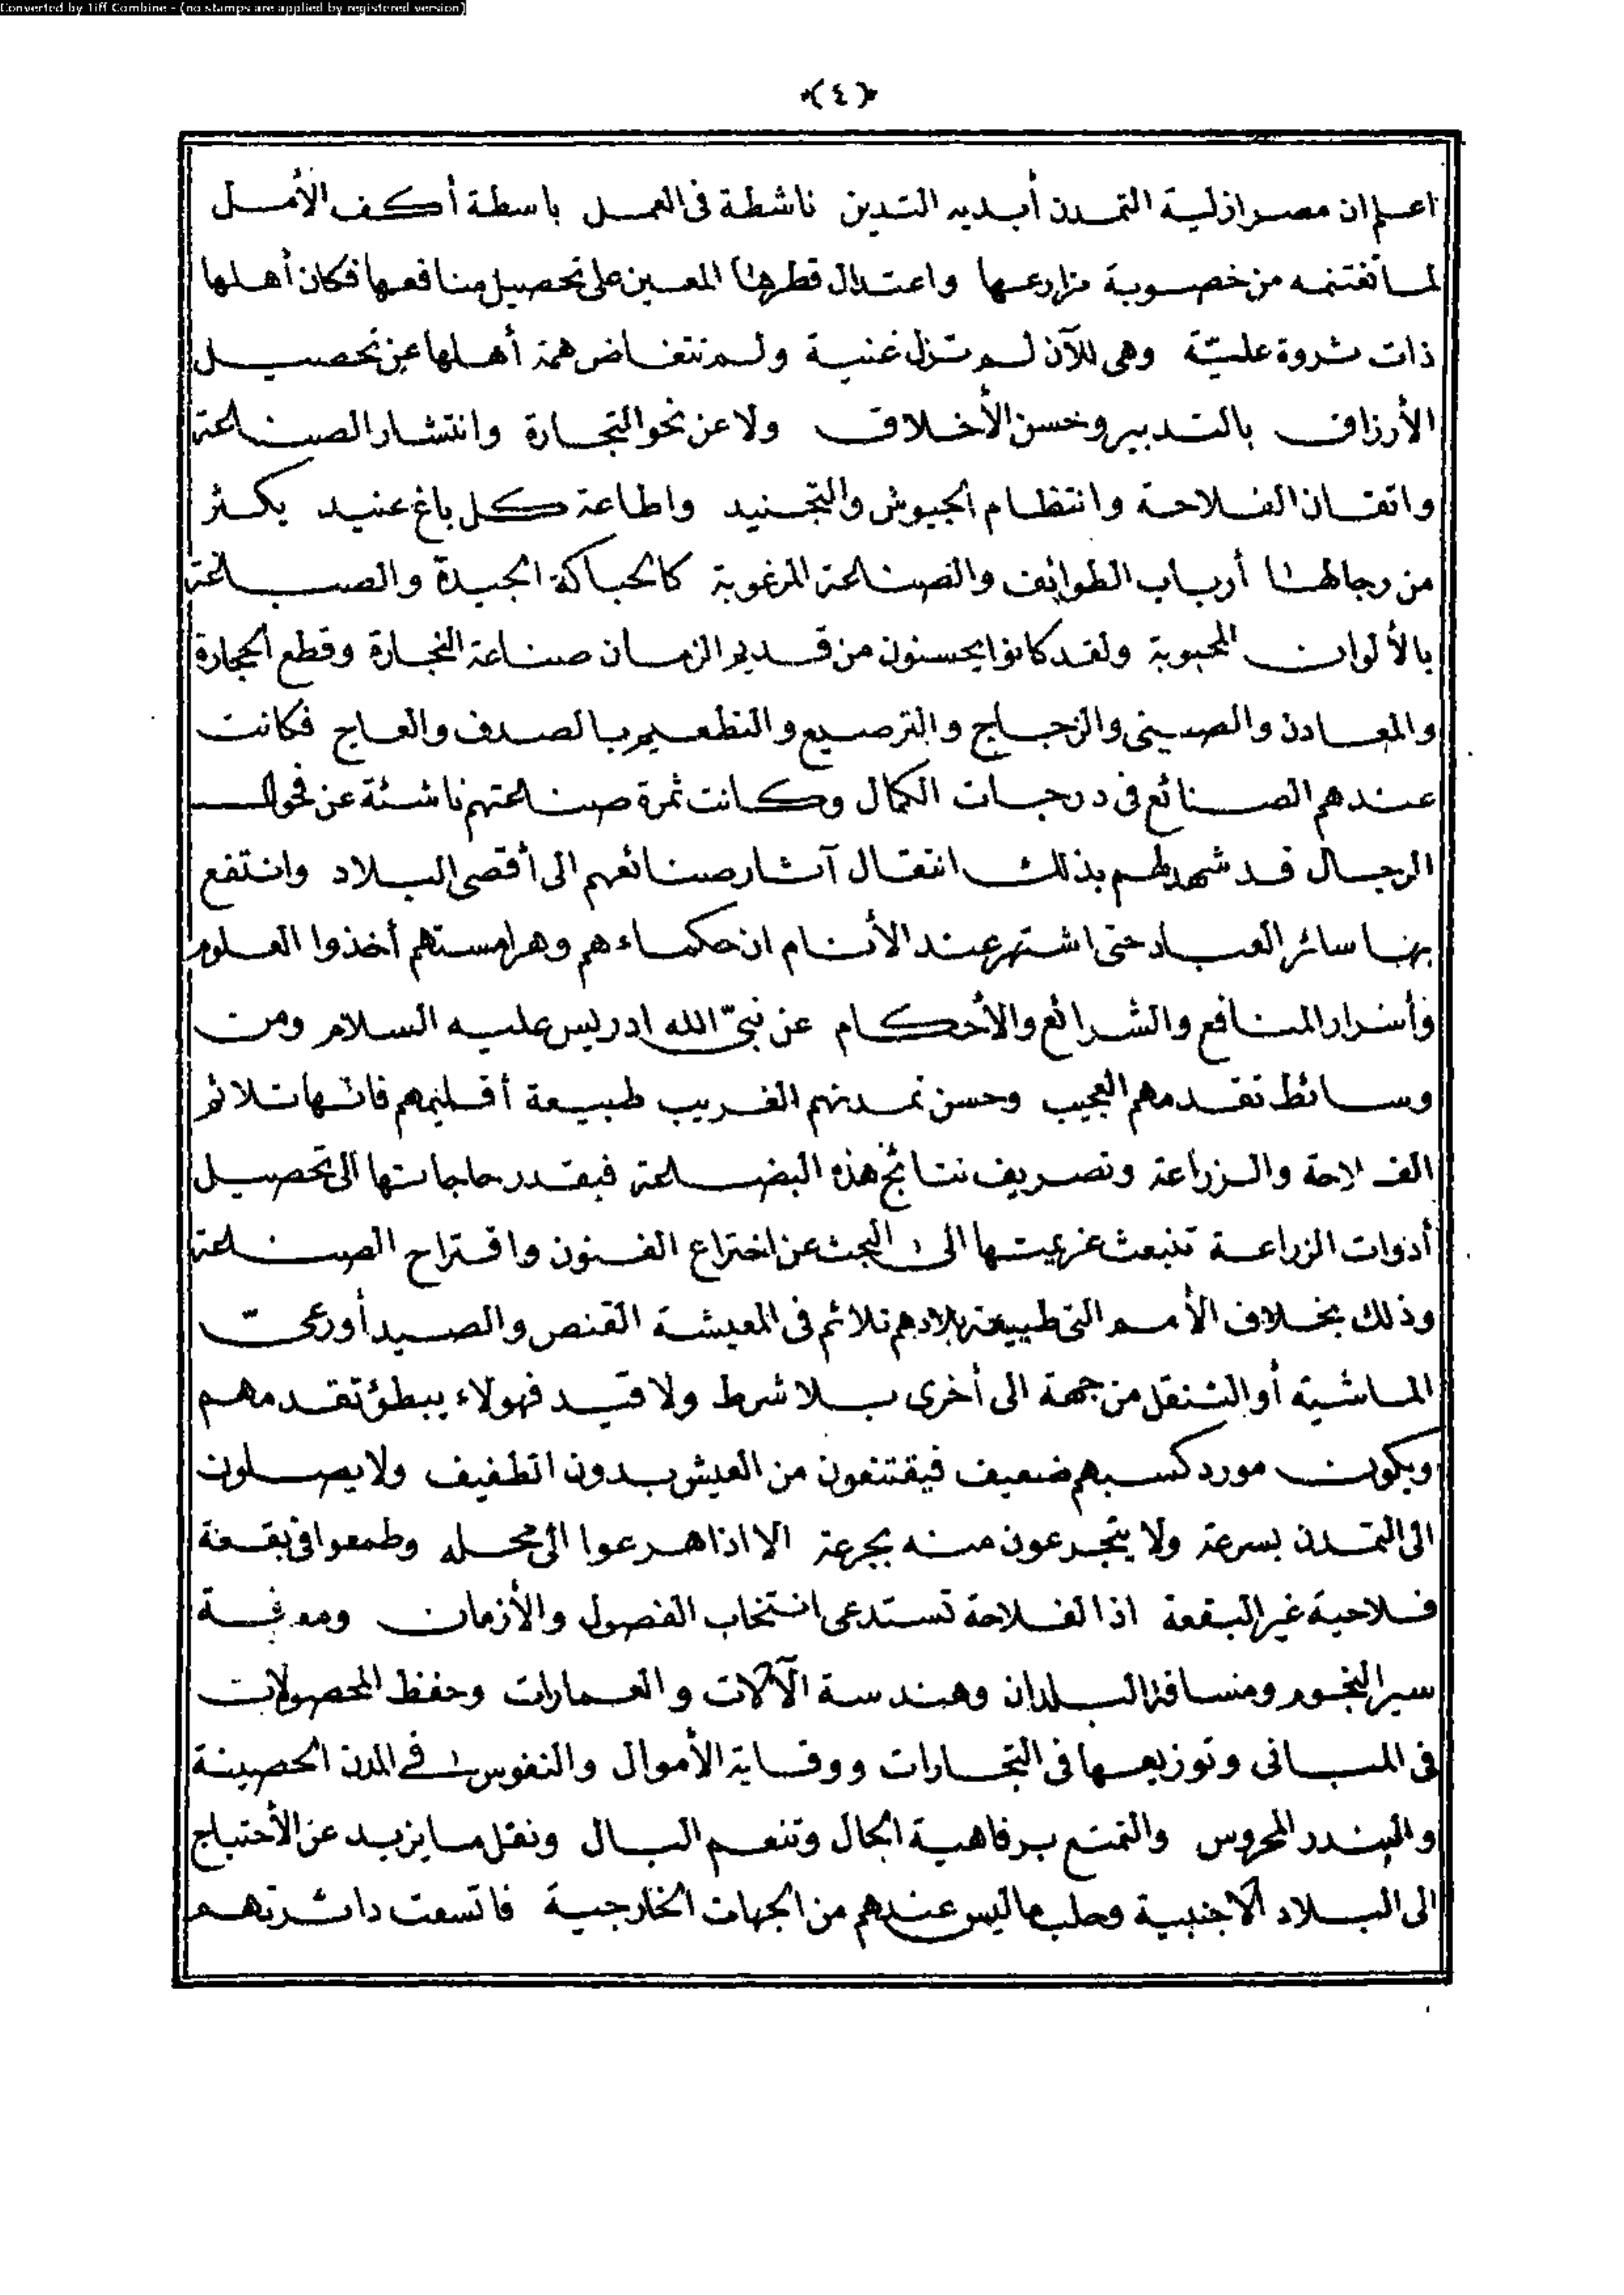 Converted by Tiff Combine - (no stamps are applied by registered version)
﴿٤﴾
اعلم ان مصر ازلية التمدن أبديه التدين ناشطة فى العمل باسطة أكف الأمل
لما تغتنمه من خصوبة مزارعها واعتدال قطرها المعين على تحصيل منافعها فكان أهلها
ذات ثروة عليّة وهى للآن لم تزل غنية ولم تتغاض همة أهلها عن تحصيل
الأرزاق بالتدبير وحسن الأخلاق ولا عن نحو التجارة وانتشار الصناعة
واتقان الفلاحة وانتظام الجيوش والتجنيد واطاعة كل باغ عنيد يكثر
من رجالها أرباب الطوايف والصناعة المرغوبة كالحياكة الجيدة والصباغة
بالألوان المحبوبة ولقد كانوا يحسنون من قديم الزمان صناعة النجارة وقطع الحجارة
والمعادن والصينى والزجاج والترصيع والتطعيم بالصدف والعاج فكانت
عندهم الصنائع فى درجات الكمال وكانت ثمرة صناعتهم ناشئة عن فحول
الرجال قد شهد لهم بذلك انتقال آثار صنائعهم الى أقصى البلاد وانتفع
بها سائر العباد حتى اشتهر عند الأنام ان حكماءهم وهرامستهم أخذوا العلوم
وأسرار المنافع والشرائع والأحكام عن نبىّ الله ادريس عليه السلام ومن
وسائط تقدمهم العجيب وحسن تمدنهم الغريب طبيعة أقليمهم فانها تلائم
الفلاحة والزراعة وتصريف نتائج هذه البضاعة فبقدر حاجاتها الى تحصيل
أدوات الزراعة تنبعث عزيمتها الى البحث عن اختراع الفنون واقتراح الصناعة
وذلك بخلاف الأمم التى طبيعة بلادهم تلائم فى المعيشة القنص والصيد أو رعى
الماشية أو التنقل من جهة الى أخرى بلا شرط ولا قيد فهولاء يبطؤ تقدمهم
ويكون مورد كسبهم ضعيف فيقتنعون من العيش بدون الطفيف ولا يصلون
الى التمدن بسرعة ولا يتجرعون منه بجرعة الا اذا هرعوا الى محله وطمعوا فى بقعة
فلاحية غير البقعة اذ الفلاحة تستدعى انتخاب الفصول والأزمان ومعرفة
سير النجوم ومسافة البلدان وهندسة الآلات والعمارات وحفظ المحصولات
فى المبانى وتوزيعها فى التجارات ووقاية الأموال والنفوس فى المدن الحصينة
والبندر المحروس والتمتع برفاهية الحال وتنعم البال ونقل ما يزيد عن الأحتياج
الى البلاد الأجنبية وجلب ما ليس عندهم من الجهات الخارجية فاتسعت دائرتهم